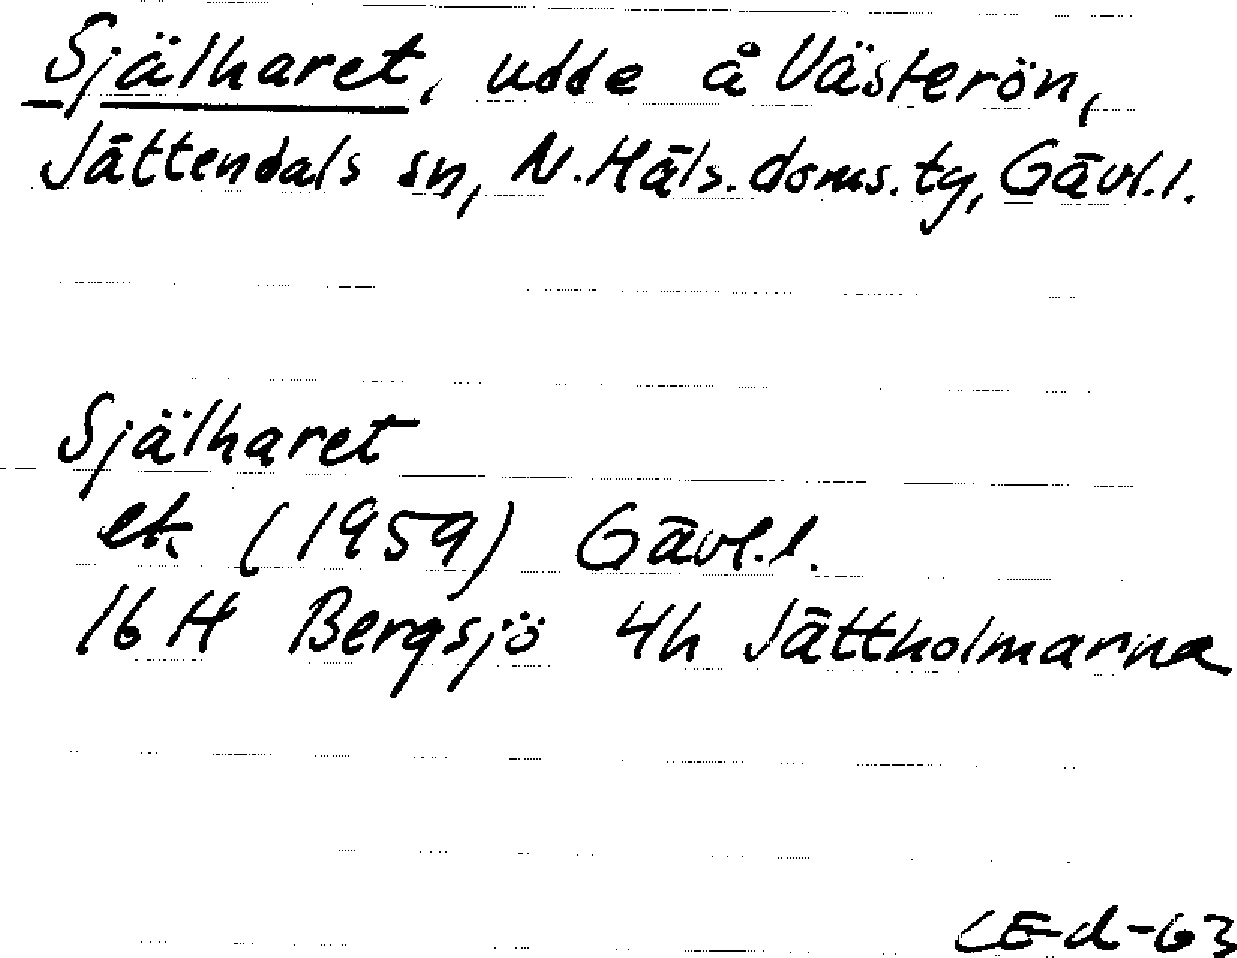 Själharet, udde å Västerön,
Jättendals sn, N. Häls. doms. tg, Gävl.l.
Själharet
ek (1959) Gävl.l.
16 H Bergsjö 4h Jättholmarna
CE-d-63